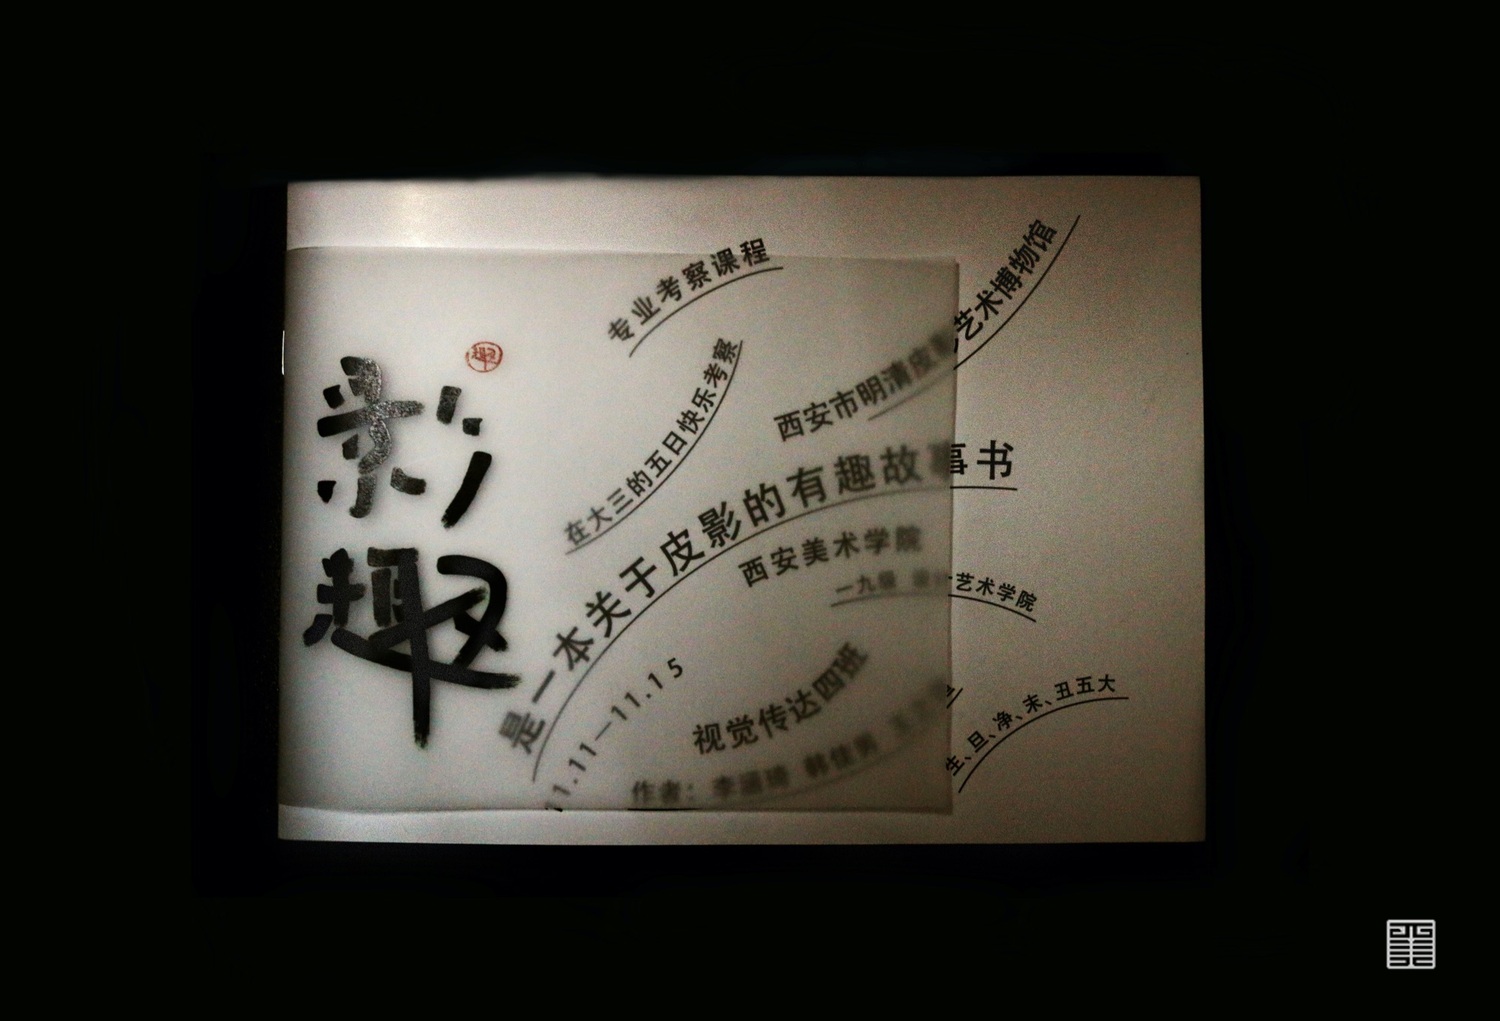 影趣
专业考察课程
在大三的五日快乐考察
西安市明清皮影艺术博物馆
是一本关于皮影的有趣故事书
西安美术学院
一九级 设计艺术学院
11.11—11.15
视觉传达四班
作者：李涵琦 韩佳
生、旦、净、末、丑五大